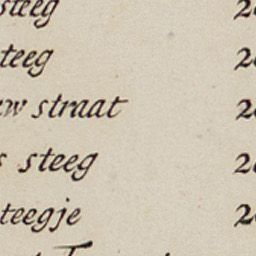 steeg 2
steeg 2
w straat 2
s steeg 2
teegje 2